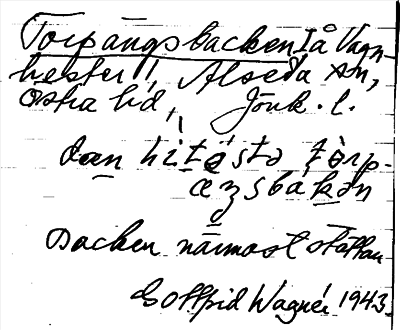 Torpängsbacken Iå Vagn-
hester!, Alseda sn,
Östra hd, Jönk. l.
dan hitǝstǝ tòrp-
æŋsbakǝn
Backen närmast stättan
Gottfrid Wagnér 1943